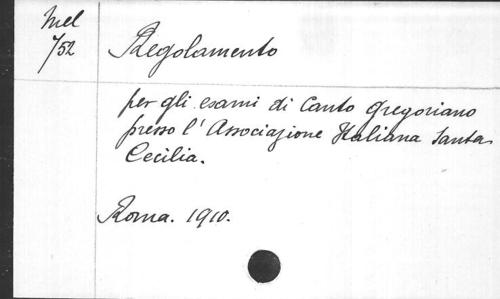 Mel
752
Regolamento
per gli esami di Canto gregoriano
presso l'Associazione Italiana Santa
Cecilia.
Roma. 1910.